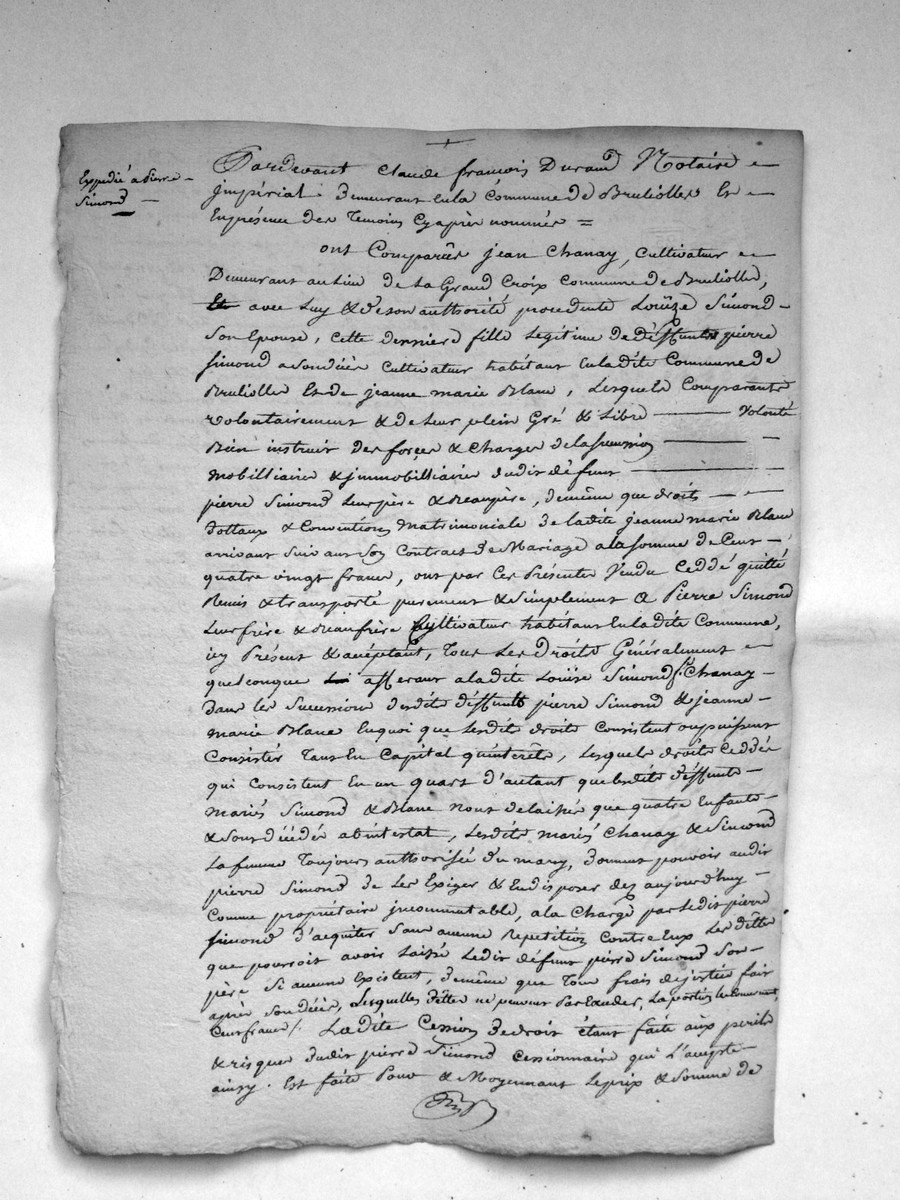 Expedié a Pierre
Simond
Pardevant Claude françois Durand Notaire
Impérial demeurant en la Commune de Brulioller Et
En présence des Temoins Cyaprès nommés =
ont Comparûs jean Chanay, Cultivateur
Demeurant au lieu de La Grand Croix Commune de Brulioller,
avec Luy & de son authorité procedente Loüize Simond
Son Epouse, Cette derniere fille Legitime de déffunt pierre
Simond a son déces Cultivateur habitant En la dite Commune de
Brulioller Et de jeanne marie Blanc, Lesquels Comparants
volontairement & de Leur plein Gré & Libre volonté
Bien instruit des forçes & Charges de la sucession
mobilliaire & jmmobilliaire dudit défunt
pierre Simond Leur père & Beaupère, de même que droits
dottaux & Conventions matrimoniale de la dite jeanne marie Blanc
arrivant Suivant Son Contract de Mariage a la somme de Cent
quatre vingt francs, ont par Ces Présentes Vendu Ceddé quitté
Remis & transporté purement & Simplement a Pierre Simond
Leur frère & Beaufrère Cultivateur habitant En la dite Commune,
icy Présent & acéptant, Tous Les Droits Généralement
quelconque afferant a la dite Loüise Simond fe Chanay
dans les Sucessions desdits déffunts pierre Simond & jeanne
marie Blanc En quoi que Lesdits droits Consistent ou puissent
Consister Tant En Capital qu'intérêts, Lesquels droits Ceddés
qui Consistent En un quart d'autant que Lesdits déffunts
mariés Simond & Blanc n'ont delaissé que quatre Enfants
& Sont décédés abintestat, Lesdits mariés Chanay & Simond
La femme Toujours authorisée du mary, donnent pouvoir audit
pierre Simond de Les Exiger & En disposer dez aujourd'huy
Comme propriétaire jncommutable, a la Charge par Ledit pierre
Simond d'acquiter Sans aucune Repetition Contre Eux Les déttes
que pourroit avoir Laissé Ledit défunt pierre Simond Son
père Si aucune Existent, de même que Tous frais de justice fait
après Son décès, Lesquelles déttes ne peuvent La portion
Cent francs /. La dite Cession de droit étant faite aux perils
& risques dudit pierre Simond Cessionnaire qui L'accepte
ainsy. Est faite Pour & Moyennant Le prix & Somme de